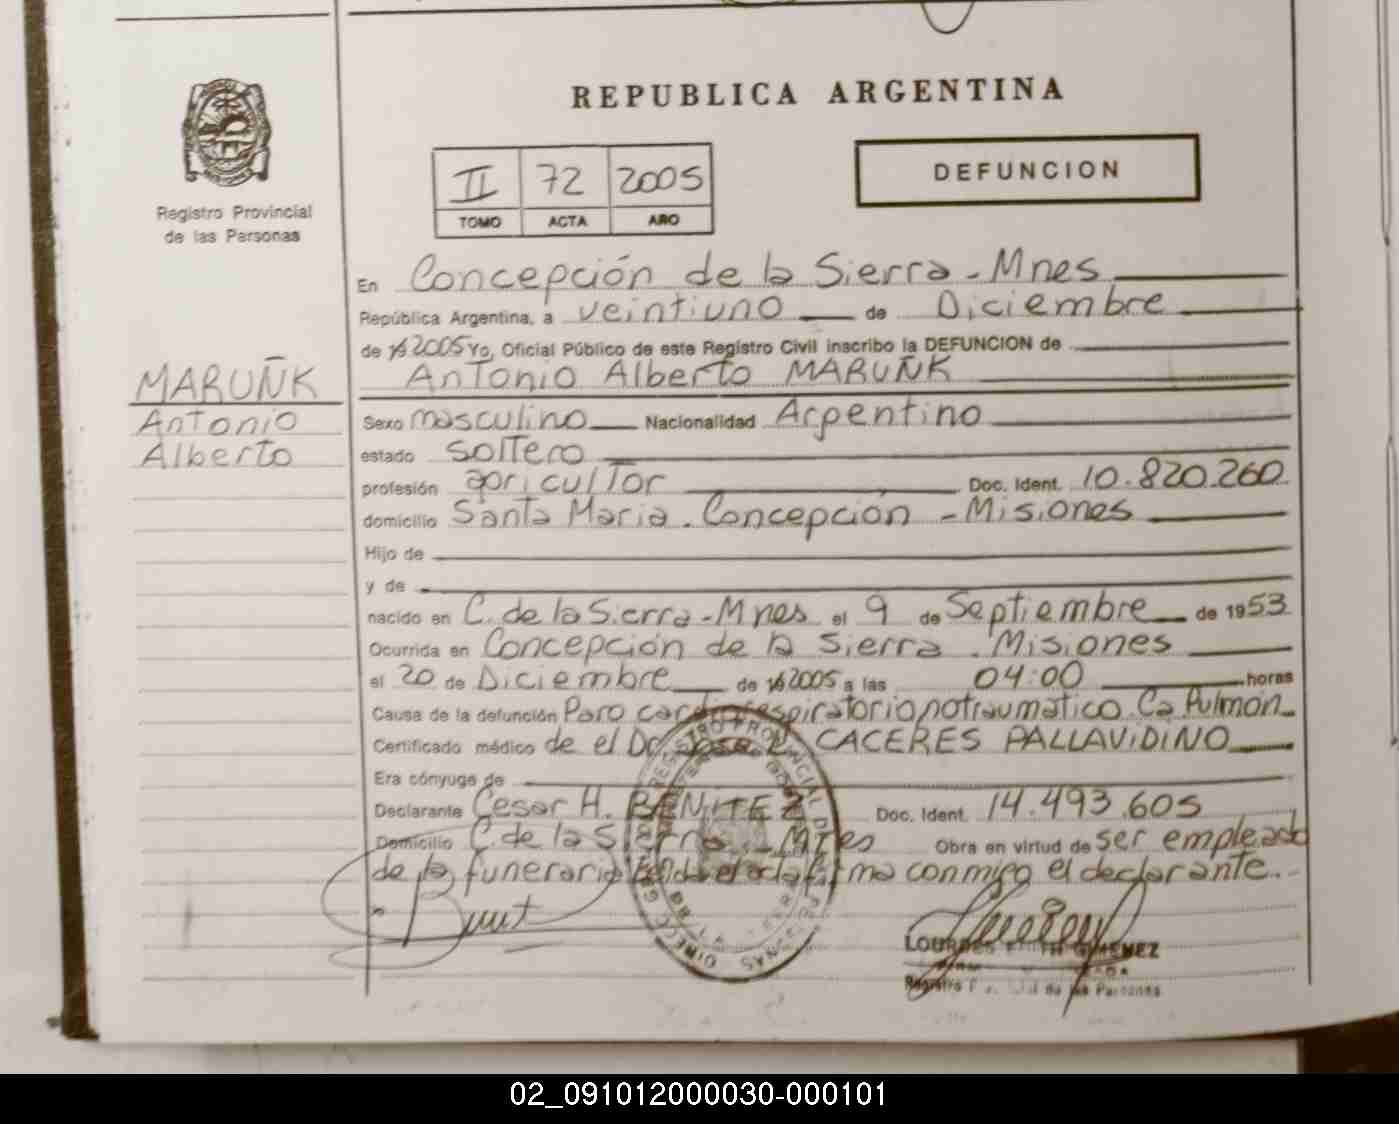 REPUBLICA ARGENTINA
Registro Provincial
de las Personas
II 72 2005
TOMO ACTA AÑO
DEFUNCION
En Concepción de la Sierra - Mnes
República Argentina, a veintiuno de Diciembre
de 19 2005 Yo, Oficial Público de este Registro Civil inscribo la DEFUNCION de
Antonio Alberto MARUÑK
MARUÑK
Antonio
Alberto
Sexo masculino Nacionalidad Argentino
estado soltero
profesión agricultor Doc. Ident. 10.820.260
domicilio Santa Maria. Concepción - Misiones
Hijo de
y de
nacido en C. de la Sierra - Mnes el 9 de Septiembre de 1953
Ocurrida en Concepción de la Sierra. Misiones
el 20 de Diciembre de 19 2005 a las 04:00 horas
Causa de la defunción Paro cardiorespiratorio no traumatico. Ca Pulmón
Certificado médico de el Dr. CACERES PALLAVIDINO
Era cónyuge de
Declarante Cesar H. BENITEZ Doc. Ident. 14.493.605
Domicilio C. de la Sierra - Mnes Obra en virtud de ser empleado
de la funeraria firma conmigo el declarante.
REGISTRO PROVINCIAL DE LAS PERSONAS
LOURDES GIMENEZ
Registro Provincial de las Personas
02_091012000030-000101